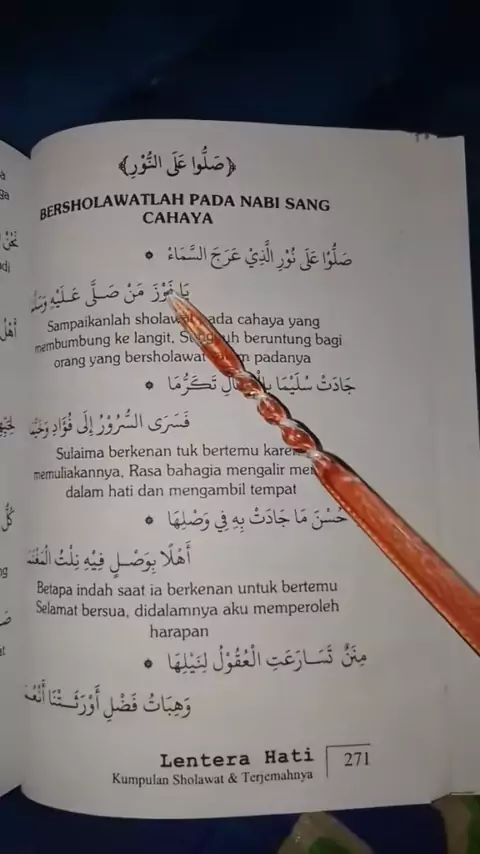 ﴿صَلُّوا عَلَى النُّوْرِ﴾
BERSHOLAWATLAH PADA NABI SANG
CAHAYA
صَلُّوْا عَلَى نُوْرِ الَّذِيْ عَرَجَ السَّمَاءْ *
يَا فَوْزَ مَنْ صَلَّى عَلَيْهِ
Sampaikanlah sholawat pada cahaya yang
membumbung ke langit, Sungguh beruntung bagi
orang yang bersholawat salam padanya
جَادَتْ سُلَيْمَا تَكَرُّمَا *
فَسَرَى السُّرُوْرُ إِلَى فُؤَادِ
Sulaima berkenan tuk bertemu
memuliakannya, Rasa bahagia mengalir
dalam hati dan mengambil tempat
حُسْنَ مَا جَادَتْ بِهِ فِي وَصْلِهَا *
أَهْلًا بِوَصْلٍ فِيْهِ نِلْتُ
Betapa indah saat ia berkenan untuk bertemu
Selamat bersua, didalamnya aku memperoleh
harapan
مِنَنٌ تَسَارَعَتِ الْعُقُوْلُ لِنَيْلِهَا *
وَهِبَاتُ فَضْلٍ أَوْرَثَتْنَا
Lentera Hati
Kumpulan Sholawat & Terjemahnya
271